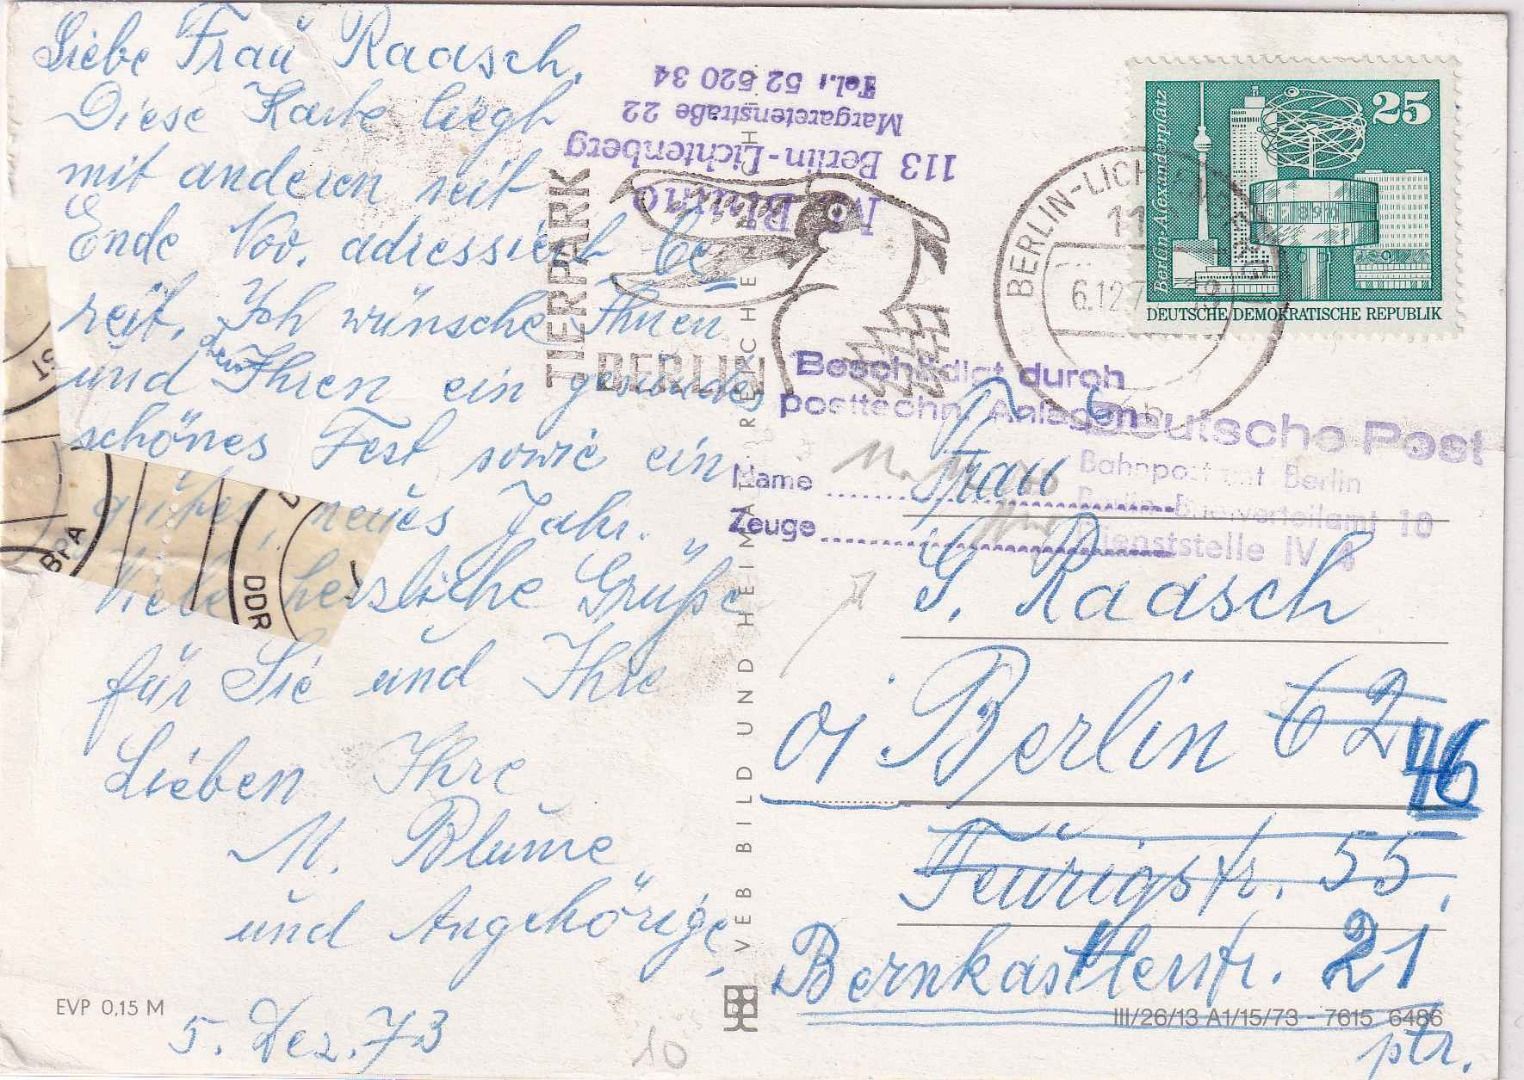 Liebe Frau Raasch,
Diese Karte liegt
mit anderen seit
Ende Nov. adressiert be
reit. Ich wünsche Ihnen
und den Ihren ein gesundes
schönes Fest sowie ein
gutes, neues Jahr.
Viele herzliche Grüße
für Sie und Ihre
Lieben Ihre
M. Blume
und Angehörige
5. Dez. 73
EVP 0,15 M
10
M. Blume
113 Berlin-Lichtenberg
Margaretenstraße 22
Tel.: 52 520 34
TIERPARK
BERLIN
BERLIN-LICHTENBERG
11
6.12.7
25
Berlin-Alexanderplatz
DEUTSCHE DEMOKRATISCHE REPUBLIK
Beschädigt durch
posttechn. Anlagen
Name
Zeuge
Deutsche Post
Bahnpostamt Berlin
Berlin-Briefverteilamt 10
Dienststelle IV 4
Frau
G. Raasch
Berlin 62
46
Feurigstr. 55,
Bernkastlerstr. 21
ptr.
VEB BILD UND HEIMAT REICHENBACH
III/26/13 A1/15/73 - 7615 6486
ST
BPA
DDR